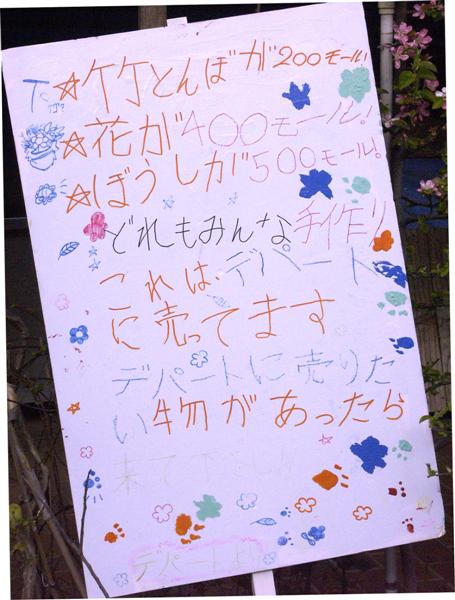 ☆竹とんぼが200モール!
☆花が400モール!
☆ぼうしが500モール。
どれもみんな手作り
これは、デパート
に売ってます
デパートに売りた
い物があったら
来て下さい
デパートより